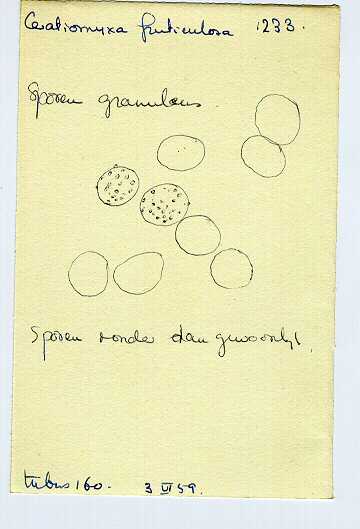 Ceratiomyxa fruticulosa 1233.
Sporen granuleus.
Sporen ronder dan gewoonlijk.
tubus 160. 3 VI 59.